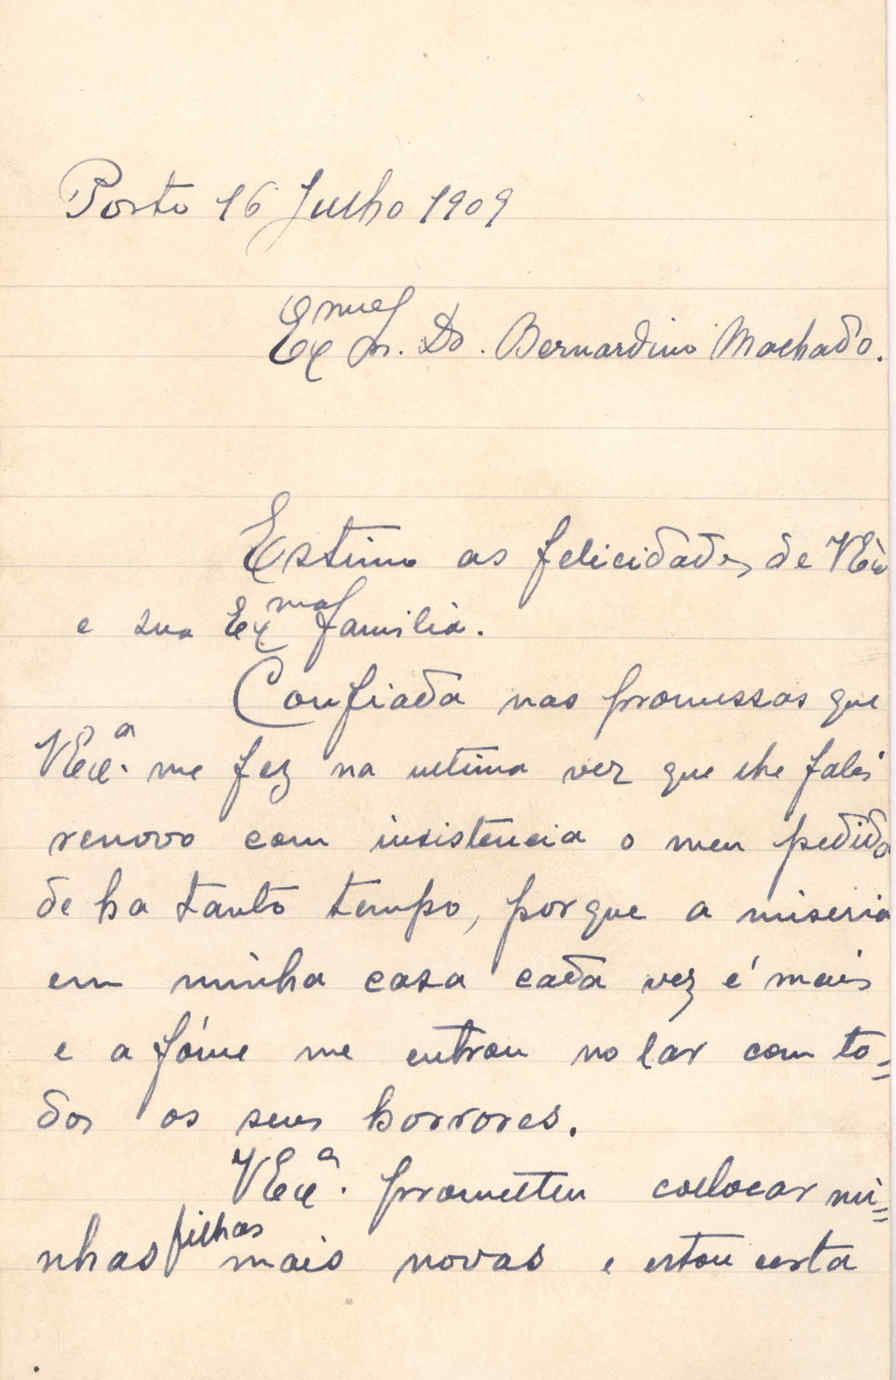 Porto 16 Julho 1909
Exmo Sr. Dr. Bernardino Machado.
Estimo as felicidades de VExa
e sua Exma familia.
Confiada nas promessas que
VExa. me fez na ultima vez que lhe falei
renovo com insistencia o meu pedido
de ha tanto tempo, porque a miseria
em minha casa cada vez é mais
e a fóme me entrou no lar com to=
dos os seus horrores.
VExa. prometteu collocar mi=
nhas filhas mais novas e estou certa